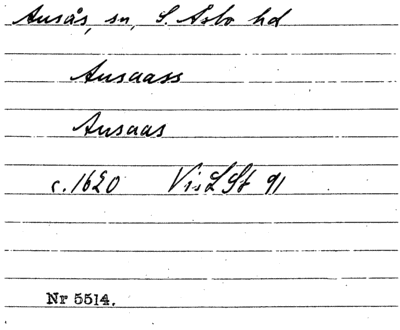 Ausås, sn, S. Åsbo hd
Ausaass
Ausaas
c. 1620 Vis L St 91
Nr 5514.